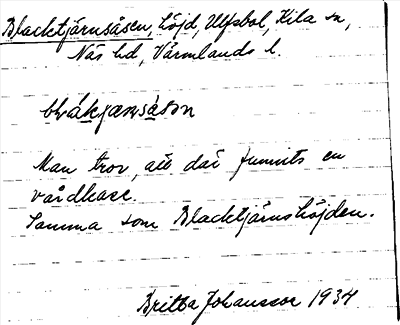 Blacktjärnsåsen, höjd, Ulfsbol, Kila sn,
Näs hd, Värmlands l.
Man tror, att där funnits en
vårdkase.
Samma som Blacktjärnshöjden.
Britta Johansson 1934